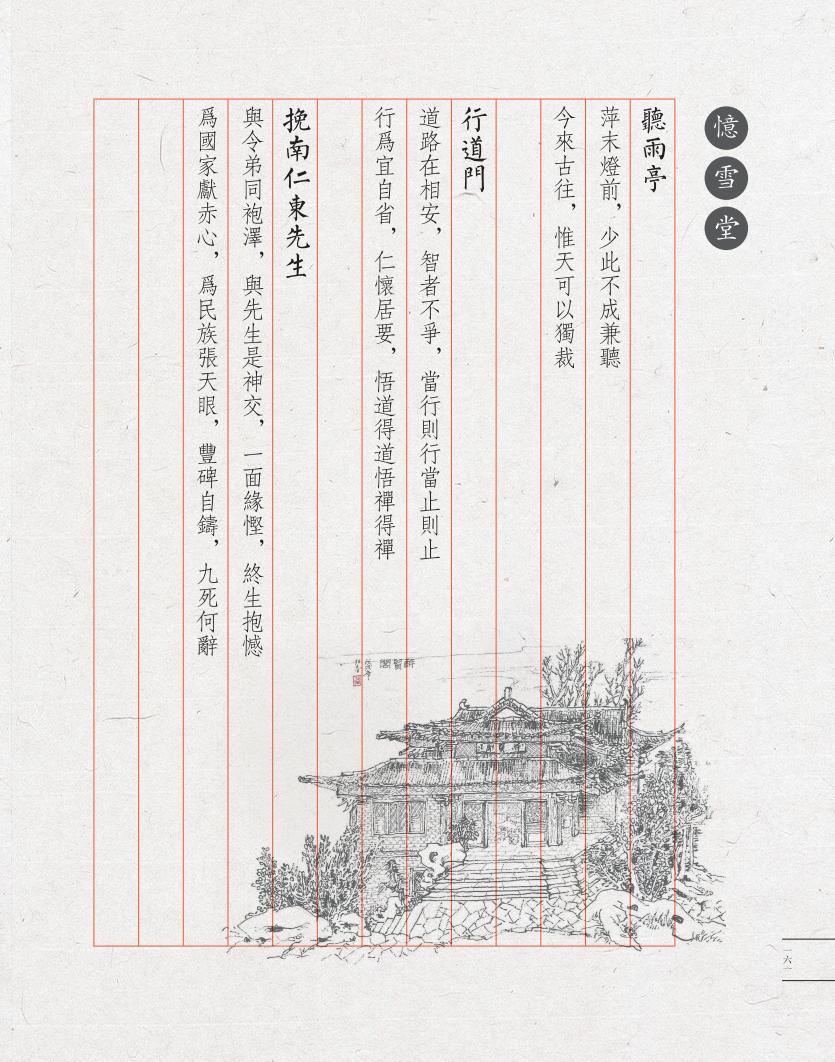 憶雪堂
聽雨亭
萍末燈前，少此不成兼聽
今來古往，惟天可以獨裁
行道門
道路在相安，智者不爭，當行則行當止則止
行爲宜自省，仁懷居要，悟道得道悟禪得禪
挽南仁東先生
與令弟同袍澤，與先生是神交，一面緣慳，終生抱憾
爲國家獻赤心，爲民族張天眼，豐碑自鑄，九死何辭
一六一